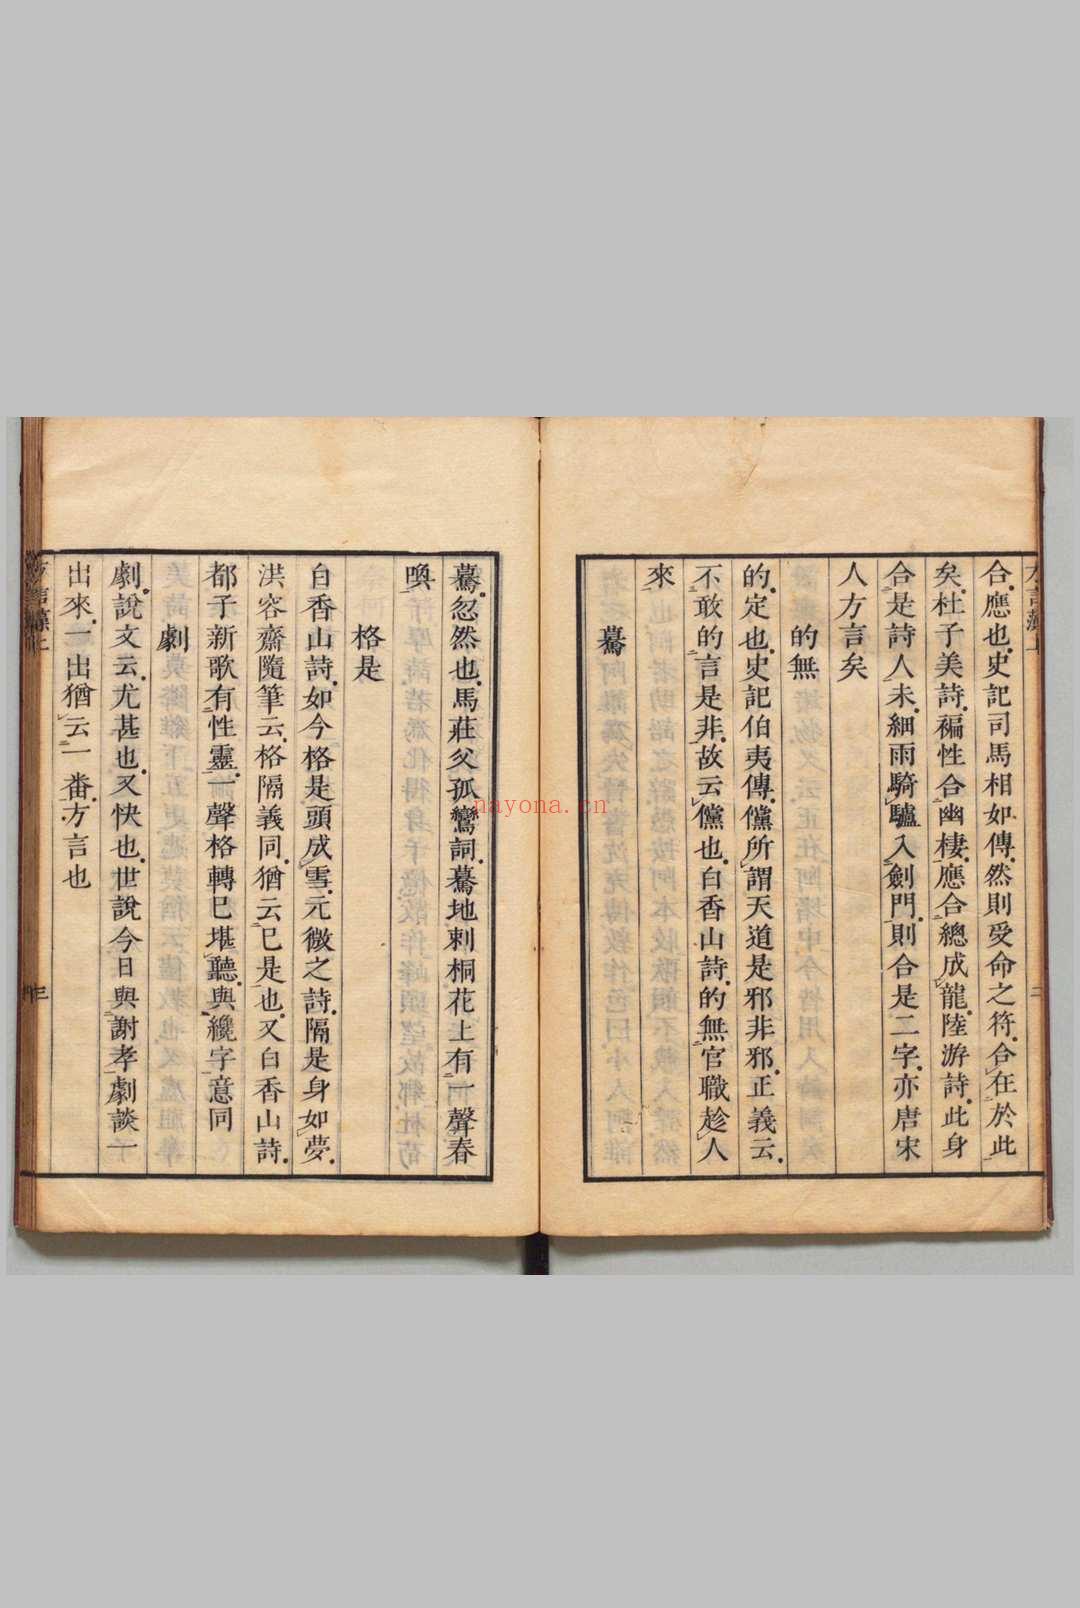 方言藻上
合應也史記司馬相如傳然則受命之符合在於此
矣杜子美詩褊性合幽棲應合總成龍陸游詩此身
合是詩人未細雨騎驢入劍門則合是二字亦唐宋
人方言矣
的無
的定也史記伯夷傳儻所謂天道是邪非邪正義云
不敢的言是非故云儻也白香山詩的無官職趁人
來
驀
驀忽然也馬莊父孤鸞詞驀地刺桐花上有一聲春
喚
格是
白香山詩如今格是頭成雪元微之詩隔是身如夢
洪容齋隨筆云格隔義同猶云已是也又白香山詩
都子新歌有性靈一聲格轉已堪聽與纔字意同
劇
劇說文云尤甚也又快也世說今日與謝孝劇談一
出來一出猶云一番方言也
方言藻上
三
nayona.cn